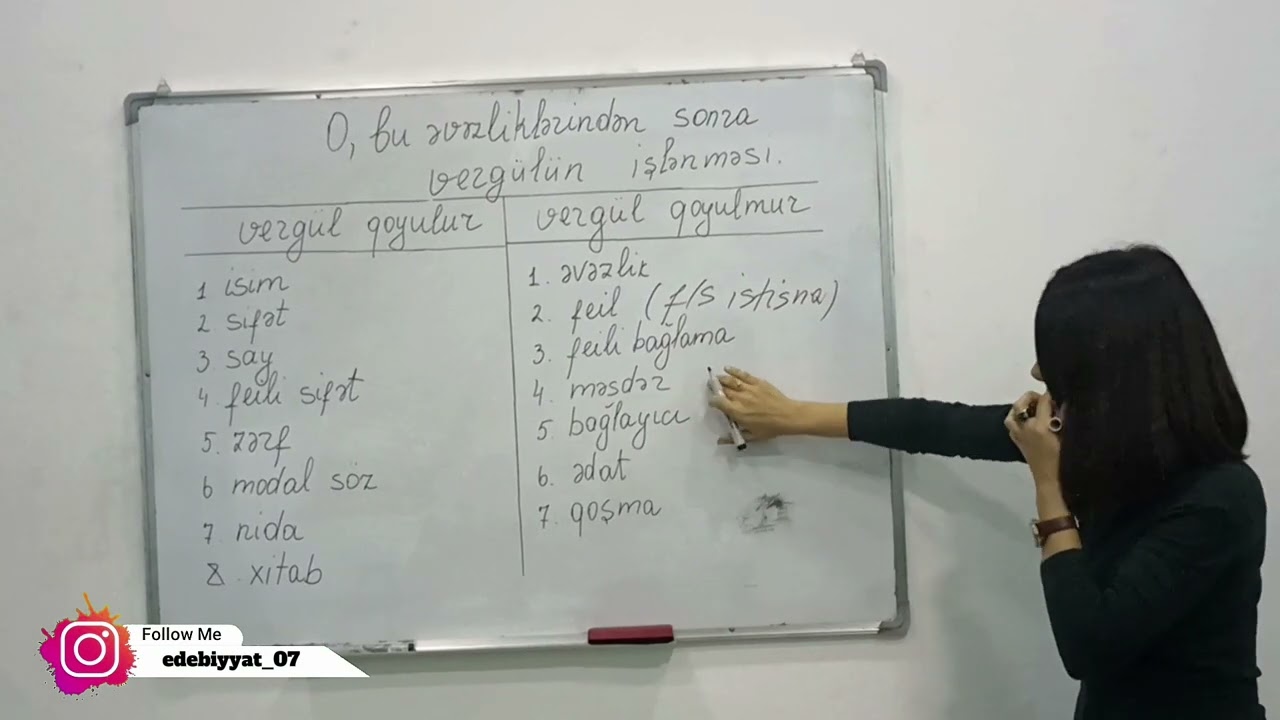 O, bu əvəzliklərindən sonra
vergülün işlənməsi.
vergül qoyulur
1 isim
2 sifət
3 say
4 feili sifət
5. zərf
6 modal söz
7 nida
8. xitab
vergül qoyulmur
1. əvəzlik
2. feil (f/s istisna)
3. feili bağlama
4. məsdər
5. bağlayıcı
6. ədat
7. qoşma
Follow Me
edebiyyat_07